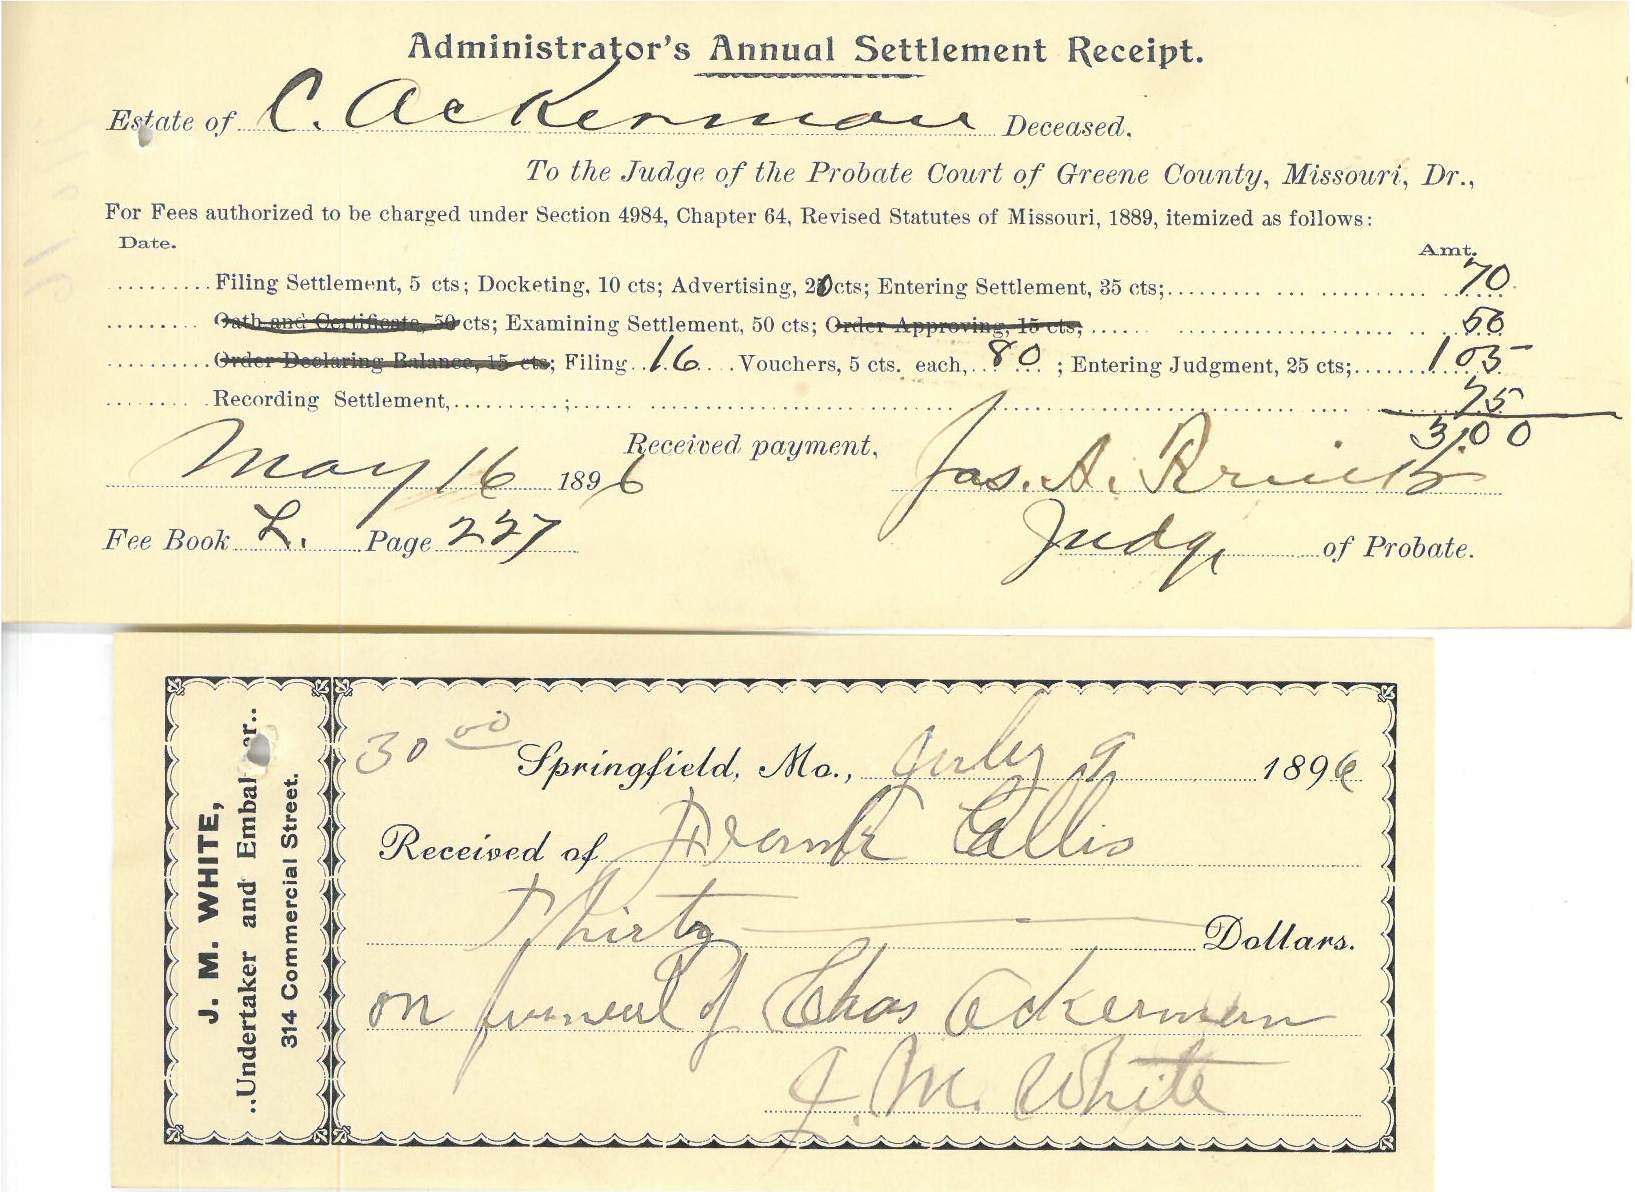 Administrator's Annual Settlement Receipt.
Estate of C. Ackerman Deceased.
To the Judge of the Probate Court of Greene County, Missouri, Dr.,
For Fees authorized to be charged under Section 4984, Chapter 64, Revised Statutes of Missouri, 1889, itemized as follows:
Date. Amt.
Filing Settlement, 5 cts; Docketing, 10 cts; Advertising, 20cts; Entering Settlement, 35 cts; 70
Oath and Certificate, 50 cts; Examining Settlement, 50 cts; Order Approving, 15 cts; 50
Order Declaring Balance, 15 cts; Filing 16 Vouchers, 5 cts. each, 80 ; Entering Judgment, 25 cts; 1 05
Recording Settlement, ; 75
3,00
Received payment,
May 16 1896 Jas. A.
Fee Book L. Page 227 Judge of Probate.
J. M. WHITE,
..Undertaker and Embal er..
314 Commercial Street.
30 00 Springfield, Mo., July 9 1896
Received of Frank Ellis
Thirty Dollars.
on funeral of Chas Ackerman
J. M. White